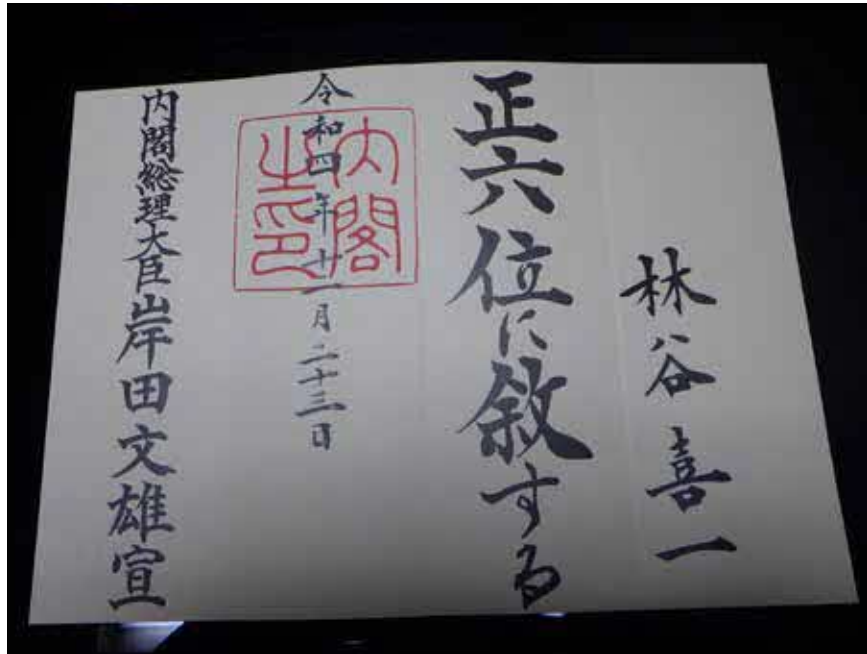 林谷喜一
正六位に敘する
令和四年十一月二十三日
内閣之印
内閣総理大臣岸田文雄宣